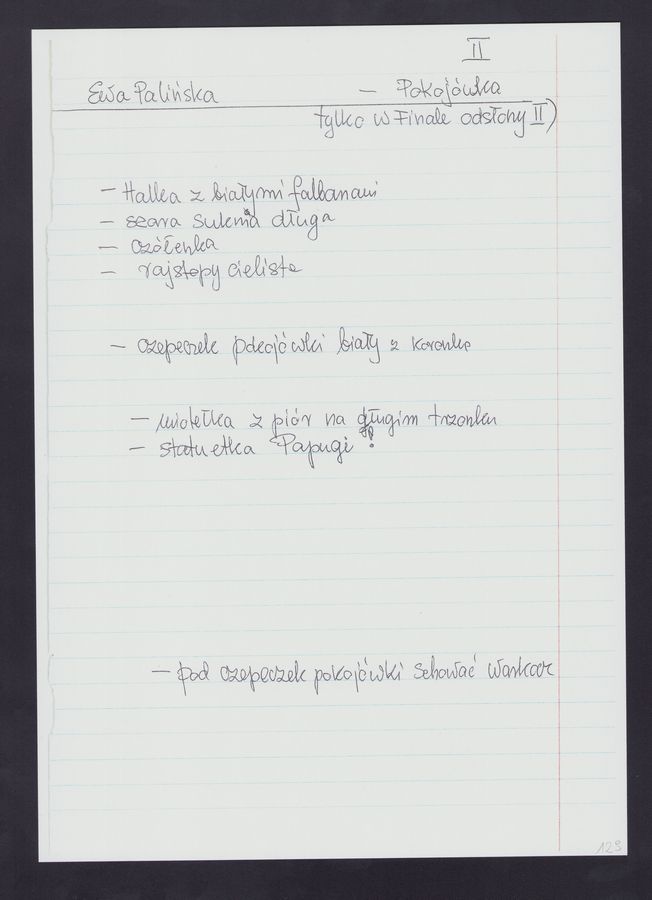 II
Ewa Palińska – Pokojówka
tylko w Finale odsłony II)
– Halka z białymi falbanami
– szara suknia długa
– czółenka
– rajstopy cieliste
– czepeczek pokojówki biały z koronką
– miotełka z piór na długim trzonku
– statuetka Papugi !
– pod czepeczek pokojówki schować warkocz
129